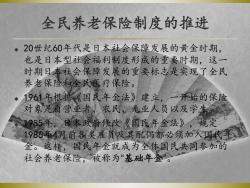 全民养老保险制度的推进
20世纪60年代是日本社会保障发展的黄金时期，
也是日本型社会福利制度形成的重要时期，这一
时期日本社会保障发展的重要标志是实现了全民
养老保险和全民医疗保险。
1961年根据《国民年金法》建立，一开始的保险
对象是自营业者、农民、无业人员以及学生。
1985年，日本政府修改《国民年金法》，规定
1986年4月前各类雇员及其配偶都必须加入国民年
金。这样，国民年金就成为全体国民共同参加的
社会养老保险，被称为“基础年金”。